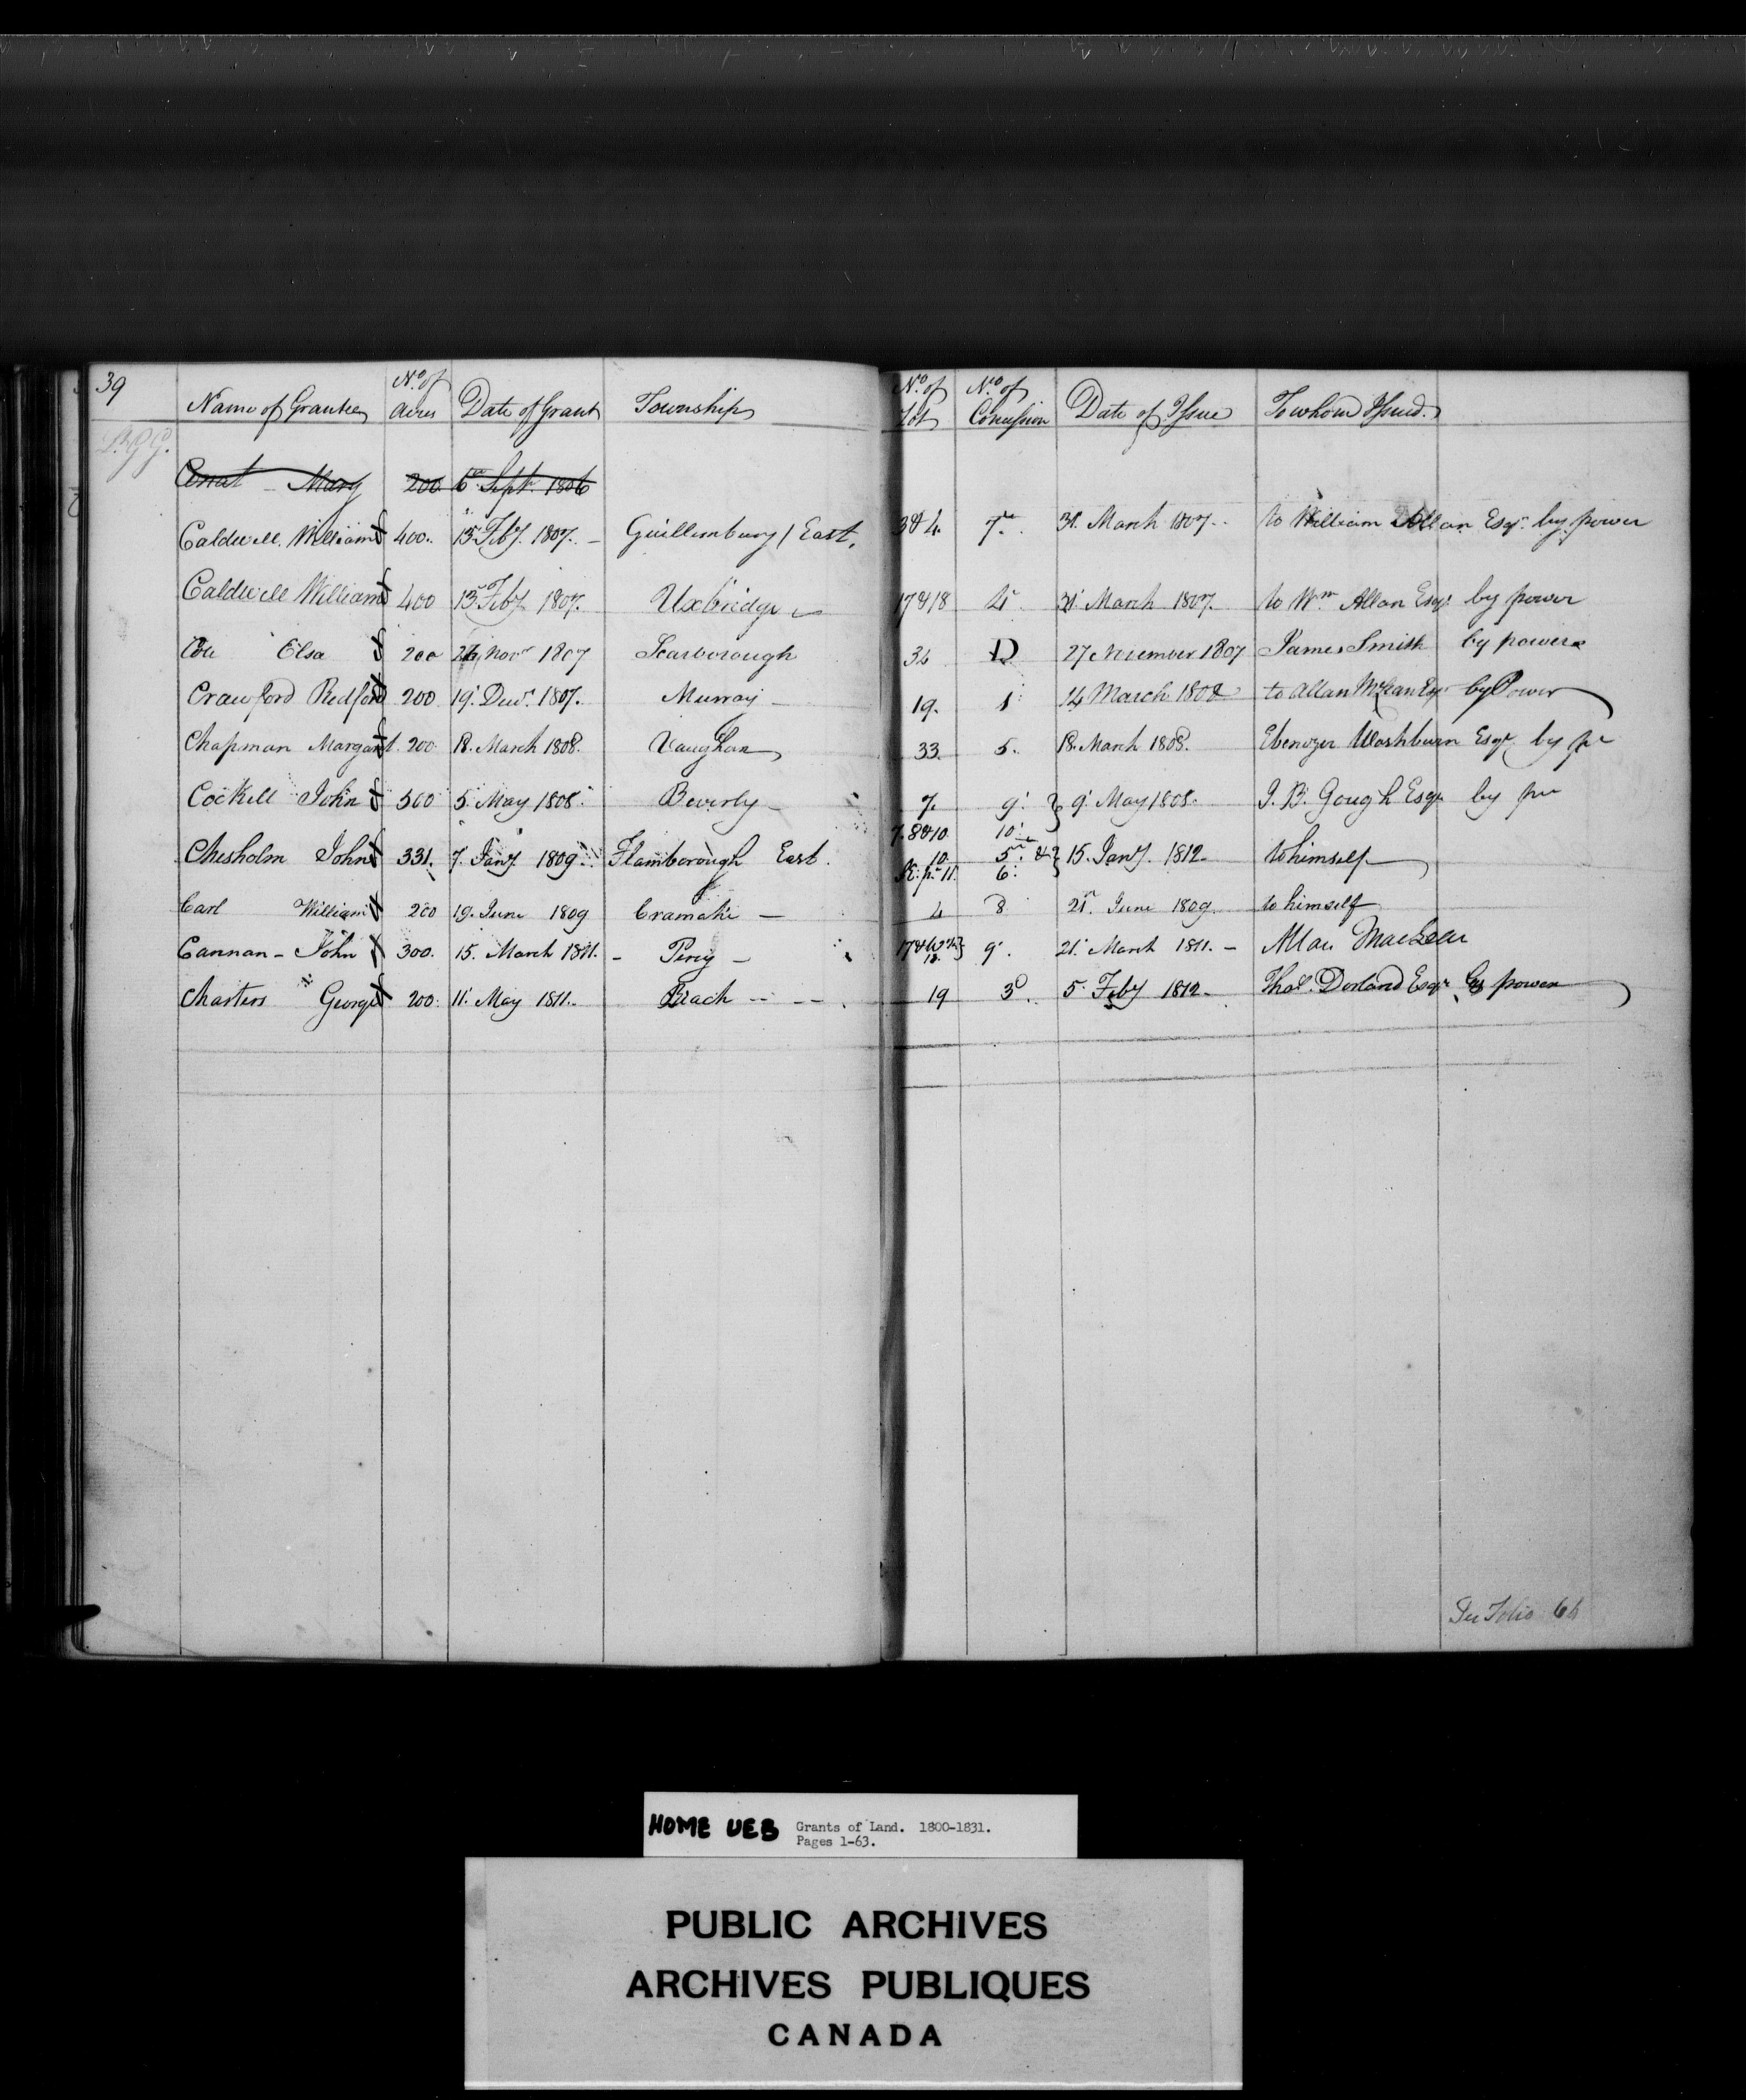 39
Name of Grantee | No. of Acres | Date of Grant | Township | No. of Lot | No. of Concession | Date of Issue | To whom Issued.
Conat - Mary | 200 | 6 Septr. 1806
Caldwell William | 400. | 13 Feby. 1807. - | Guillembury / East. | 3 & 4. | 7th. | 31. March 1807. | to William Allan Esqr. by power
Caldwell William | 400 | 13 Feby. 1807. | Uxbridge | 17 & 18 | 4. | 31 March 1807. | to Wm. Allan Esqr. by power
Elsa | 200 | 26 Novr. 1807 | Scarborough | 34 | D | 27 November 1807 | James Smith by power
Crawford Redford | 200 | 19. Decr. 1807. | Murray - | 19. | 1. | 14 March 1808 | to Allan McLean Esqr. by Power
Chapman Margaret. | 200 | 18. March 1808. | Vaughan | 33. | 5. | 18. March 1808. | Ebenezer Washburn Esqr. by pr
Cockell John | 500 | 5. May 1808. | Beverly - | 7. | 9. } 9. May 1808. | J. B. Gough Esqr. by pr
7. 8 & 10. | 10.
Chesholm John | 331. | 7. Jany. 1809. | Flamborough East. | 10. | 5th. & } 15. Jany. 1812. | to himself
pt. 11. | 6.
Carl William | 200 | 19. June 1809 | Cramahe - | 4 | 8 | 21. June 1809. | to himself
Cannan - John | 300. | 15. March 1811. - | Percy - | 17 & W 1/2 18. } | 9. | 21. March 1811. - | Allan MacLean
Charters George | 200. | 11. May 1811. | Reach - - - . | 19 | 3d. | 5. Feby 1812. | Thos. Dorland Esqr. by power
See Folio 66
HOME UEB Grants of Land. 1800-1831.
Pages 1-63.
PUBLIC ARCHIVES
ARCHIVES PUBLIQUES
CANADA